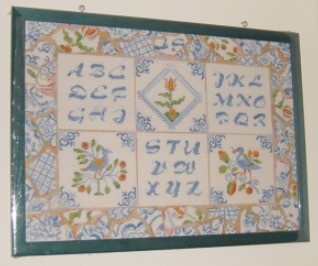 A B C
D E F
G H I
J K L
M N O
P Q R
S T U
V W
X Y Z